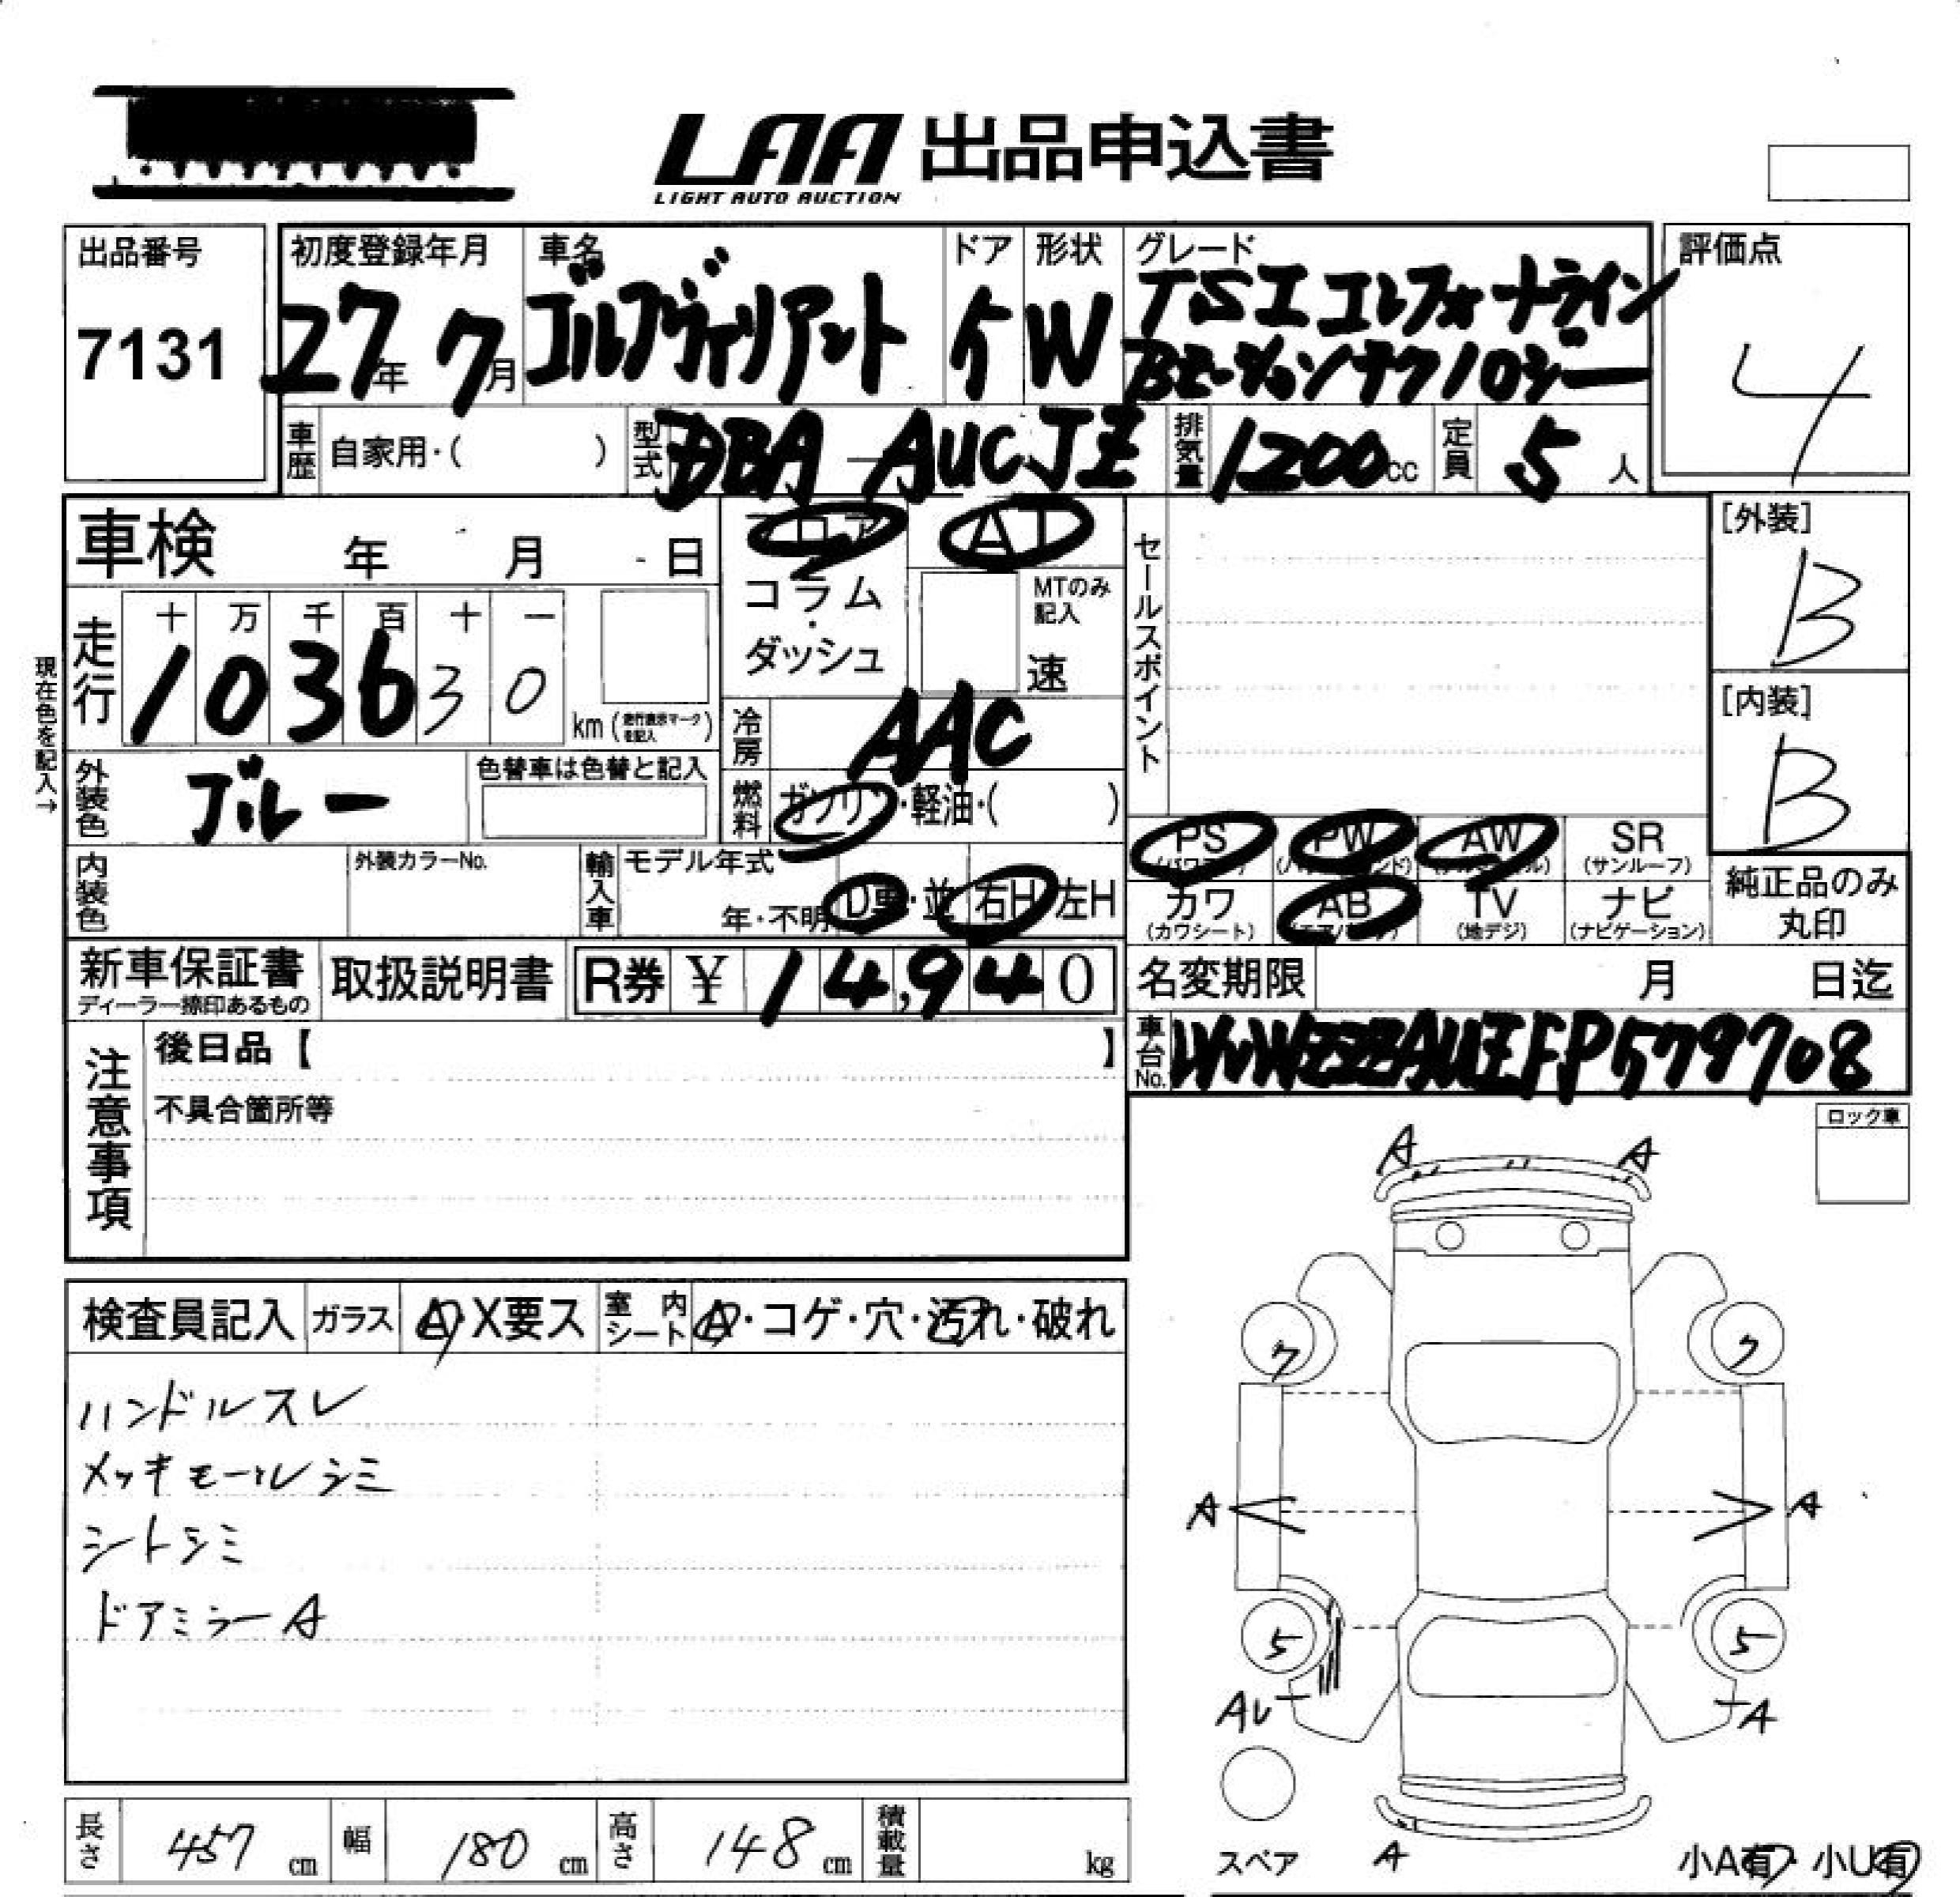 LAA 出品申込書
LIGHT AUTO AUCTION
出品番号 初度登録年月 車名 ドア 形状 グレード 評価点
7131 27年 7月 ゴルフヴァリアント 5 W TSI コンフォートライン 4
テクノロジー
車歴 自家用・( ) 型式 DBA-AUCJZ 排気量 1200cc 定員 5人
車検 年 月 日 フロア AT セールスポイント [外装]
コラム・ MTのみ記入 B
ダッシュ 速
現在色を記入→
走行 十 万 千 百 十 一
103630 km (走行表示マークを記入) [内装]
冷房 AAC B
外装色 ブルー 色替車は色替と記入 燃料 ガソリン・軽油・( )
PS PW AW SR
(サンルーフ)
内装色 外装カラーNo. 輸入車 モデル年式 年・不明 D車・並 右H 左H
カワ AB TV ナビ 純正品のみ
(カワシート) (エアバッグ) (地デジ) (ナビゲーション) 丸印
新車保証書 取扱説明書 R券 ¥14,940 名変期限 月 日迄
ディーラー捺印あるもの
注意事項 後日品【 】 車台No. WVWZZZAUZFP579708
不具合箇所等 ロック車
A A
検査員記入 ガラス A・X要ス 室内シート A・コゲ・穴・汚れ・破れ
7 7
ハンドルスレ
メッキモールシミ
A A
シートシミ
ドアミラーA
5 5
A
スペア A 小A有・小U有
長さ 457 cm 幅 180 cm 高さ 148 cm 積載量 kg